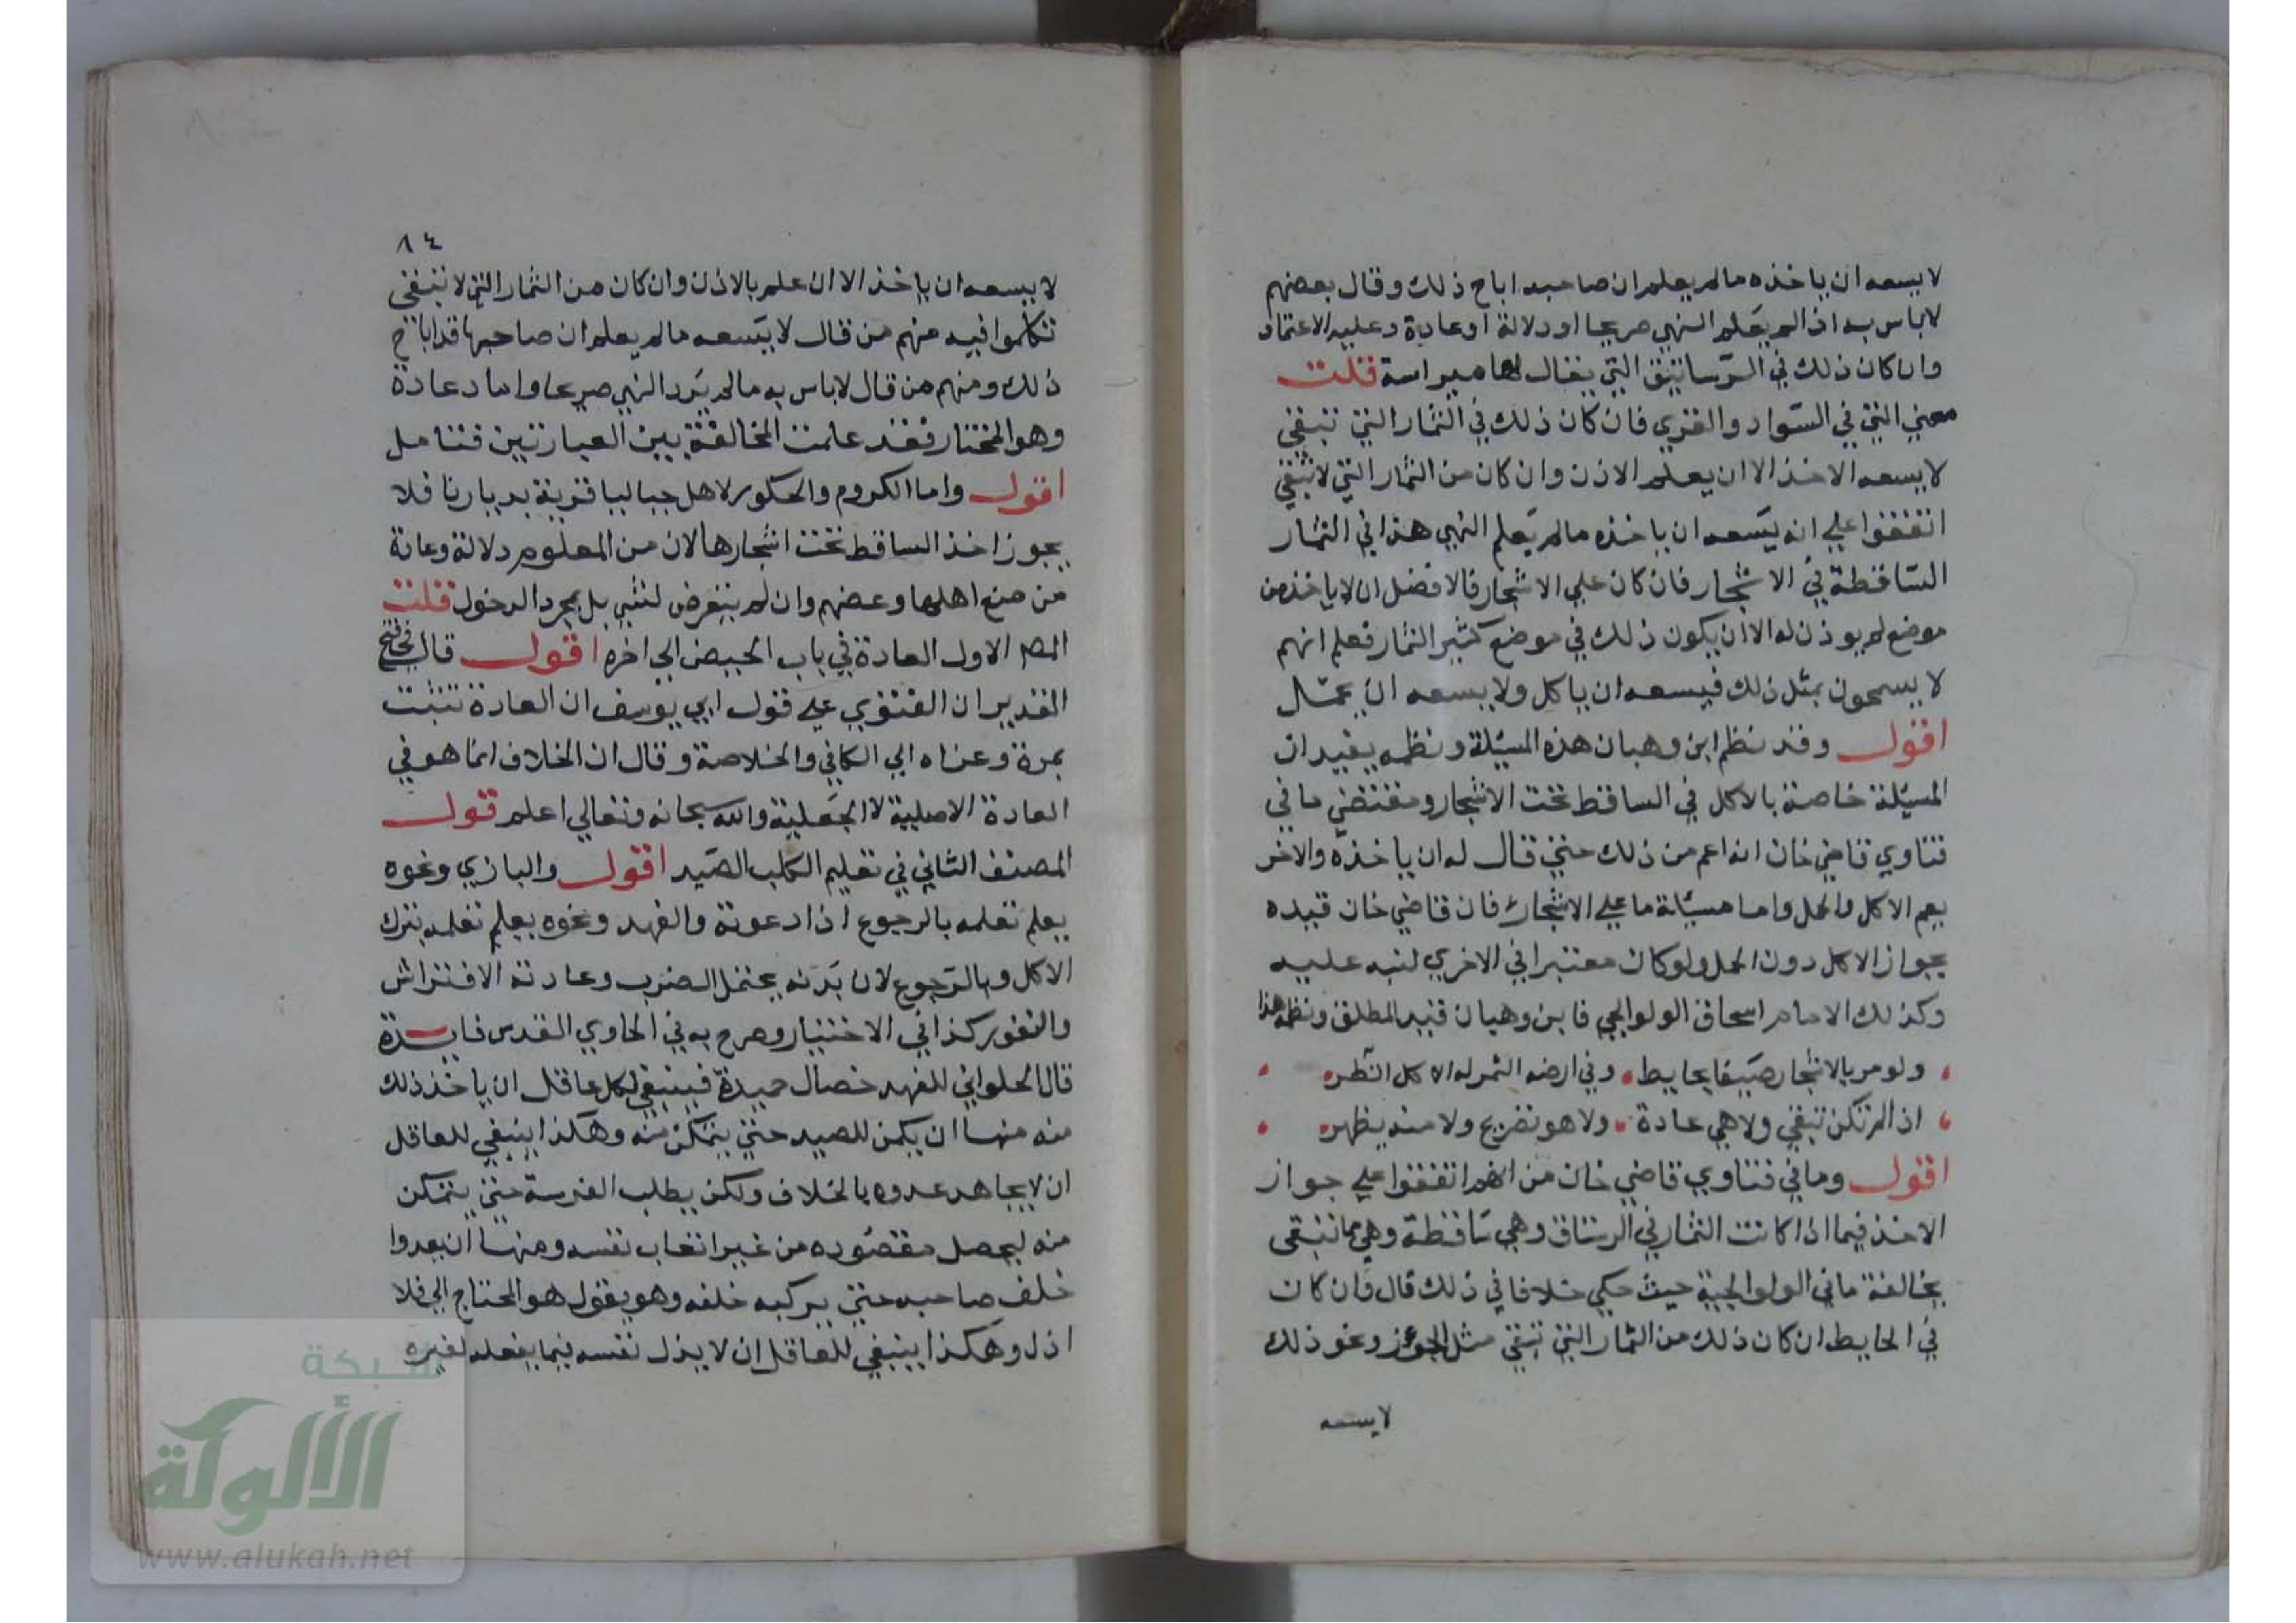 لا يسعه ان ياخذه مالم يعلم ان صاحبه اباح ذلك وقال بعضهم
لاباس به اذا لم يعلم النهي صريحا او دلالة او عادة وعليه الاعتماد
وان كان ذلك في الرساتيق التي يقال لها ميراسة قلت
معني التي في السواد والقري فان كان ذلك في الثمار التي تبقي
لا يسعه الاخذ الا ان يعلم الاذن وان كان من الثمار التي لا تبقي
اتفقوا علي انه يسعه ان ياخذه مالم يعلم النهي هذا في الثمار
الساقطة في الاشجار فان كان علي الاشجار فالافضل ان لا ياخذ من
موضع لم يوذن له الا ان يكون ذلك في موضع كثير الثمار فعلم انهم
لا يسمحون بمثل ذلك فيسعه ان ياكل ولا يسعه ان يحمل
اقول وقد نظم ابن وهبان هذه المسئلة ونظمه يفيد ان
المسئلة خاصة بالاكل في الساقط تحت الاشجار ومقتضي ما في
فتاوي قاضي خان انه اعم من ذلك حتي قال له ان ياخذه والاخر
يعم الاكل والحمل واما مسئلة ما علي الاشجار فان قاضي خان قيده
بجواز الاكل دون الحمل ولو كان معتبرا في الاخري لنبه عليه
وكذلك الامام اسحاق الولوالجي فابن وهبان قيد المطلق ونظمه هذا
ولو مر بالاشجار صيفا بحايط وفي ارضه الثمر له الاكل انظر
اذا لم تكن تبقي ولا هي عادة ولا هو تضريح ولا منه يظهر
اقول وما في فتاوي قاضي خان من انهم اتفقوا علي جواز
الاخذ فيما اذا كانت الثمار في الرستاق وهي ساقطة وهي مما تبقي
يخالفة ما في الولوالجية حيث حكي خلافا في ذلك قال وان كان
في الحايط ان كان ذلك من الثمار التي تبقي مثل الجوز ونحو ذلك
لا يسعه
٨٤
لا يسعه ان ياخذ الا ان علم بالاذن وان كان من الثمار التي لا تبقي
تكلموا فيه منهم من قال لا يسعه مالم يعلم ان صاحبها قد اباح
ذلك ومنهم من قال لاباس به مالم يرد النهي صريحا واما دعادة
وهو المختار فقد علمت المخالفة بين العبارتين فتامل
اقول واما الكروم والحكور لاهل جباليا قرية بديارنا فلا
يجوز اخذ الساقط تحت اشجارها لان من المعلوم دلالة وعادة
من منع اهلها وعضهم وان لم يتعرض لشي بل بمجرد الدخول قلت
المصـ الاول العادة في باب الحيض الي اخره اقول قال في فتح
القدير ان الفتوي علي قول ابي يوسف ان العادة تثبت
بمرة وعزاه الي الكافي والخلاصة وقال ان الخلاف انما هو في
العادة الاصلية لا الجعلية والله سبحانه وتعالي اعلم قول
المصنف الثاني في تعليم الكلب الصيد اقول والبازي ونحوه
يعلم تعلمه بالرجوع اذا دعوته والفهد ونحوه يعلم تعلمه بترك
الاكل وبالرجوع لان بدنه يحتمل الضرب وعادته الافتراش
والنفور كذا في الاختيار وصرح به في الحاوي القدس فايدة
قال الحلواني للفهد خصال حميدة فينبغي لكل عاقل ان ياخذ ذلك
منه منها ان يكمن للصيد حتي يتمكن منه وهكذا ينبغي للعاقل
ان لا يجاهد عدوه بالخلاف ولكن يطلب الفرسة حتي يتمكن
منه ليحصل مقصوده من غير اتعاب نفسه ومنها ان يعدوا
خلف صاحبه حتي يركبه خلفه وهو يقول هو المحتاج الي فلا
اذل وهكذا ينبغي للعاقل ان لا يذل نفسه فيما يفعله لغيره
شبكة
الألوكة
www.alukah.net